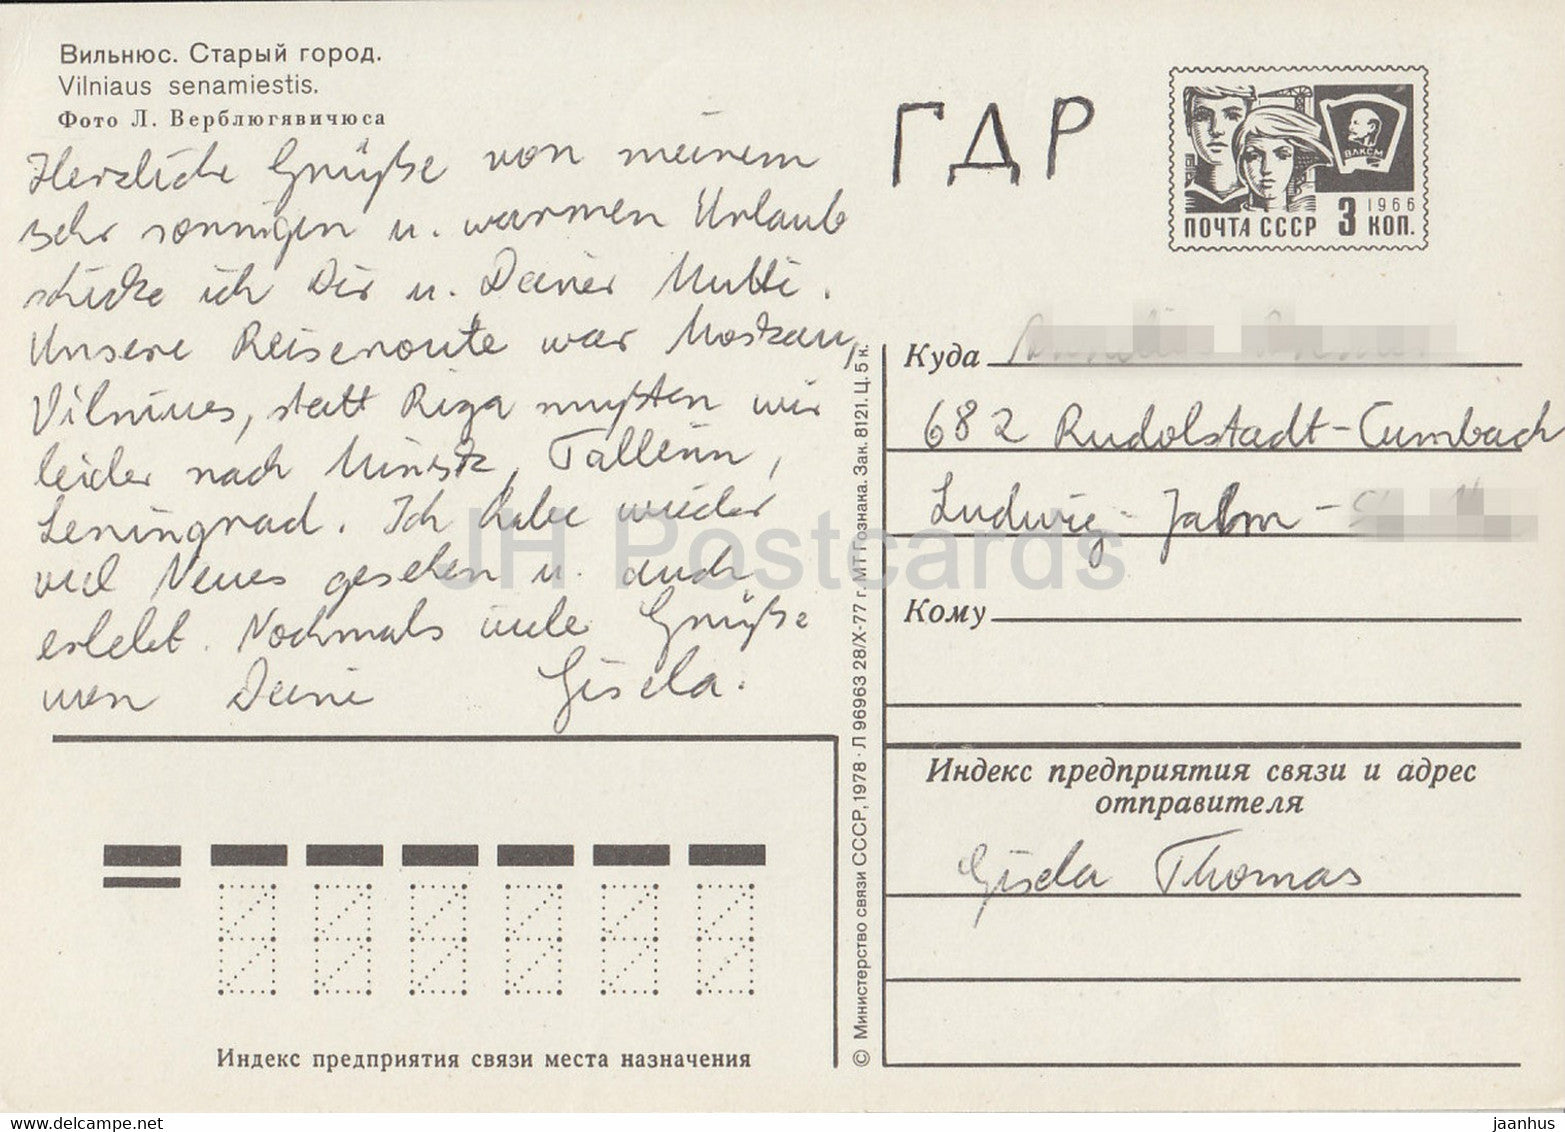 Вильнюс. Старый город.
Vilniaus senamiestis.
Фото Л. Верблюгявичюса
Herzliche Grüße von meinem
sehr sonnigen u. warmen Urlaub
schicke ich Dir u. Deiner Mutti.
Unsere Reiseroute war Moskau,
Vilnius, statt Riga mußten wir
leider nach Minsk, Tallinn,
Leningrad. Ich habe wieder
viel Neues gesehen u. auch
erlebt. Nochmals viele Grüße
von Deine Gisela.
ГДР
ВЛКСМ
1966
ПОЧТА СССР 3 КОП.
Куда
682 Rudolstadt-Cumbach
Ludwig-Jahn-
Кому
Индекс предприятия связи и адрес
отправителя
Gisela Thomas
Индекс предприятия связи места назначения
© Министерство связи СССР, 1978 · Л 96963 28/X-77 г. МТ Гознака. Зак. 8121. Ц. 5 к.
JH Postcards
delcampe.net
jaanhus